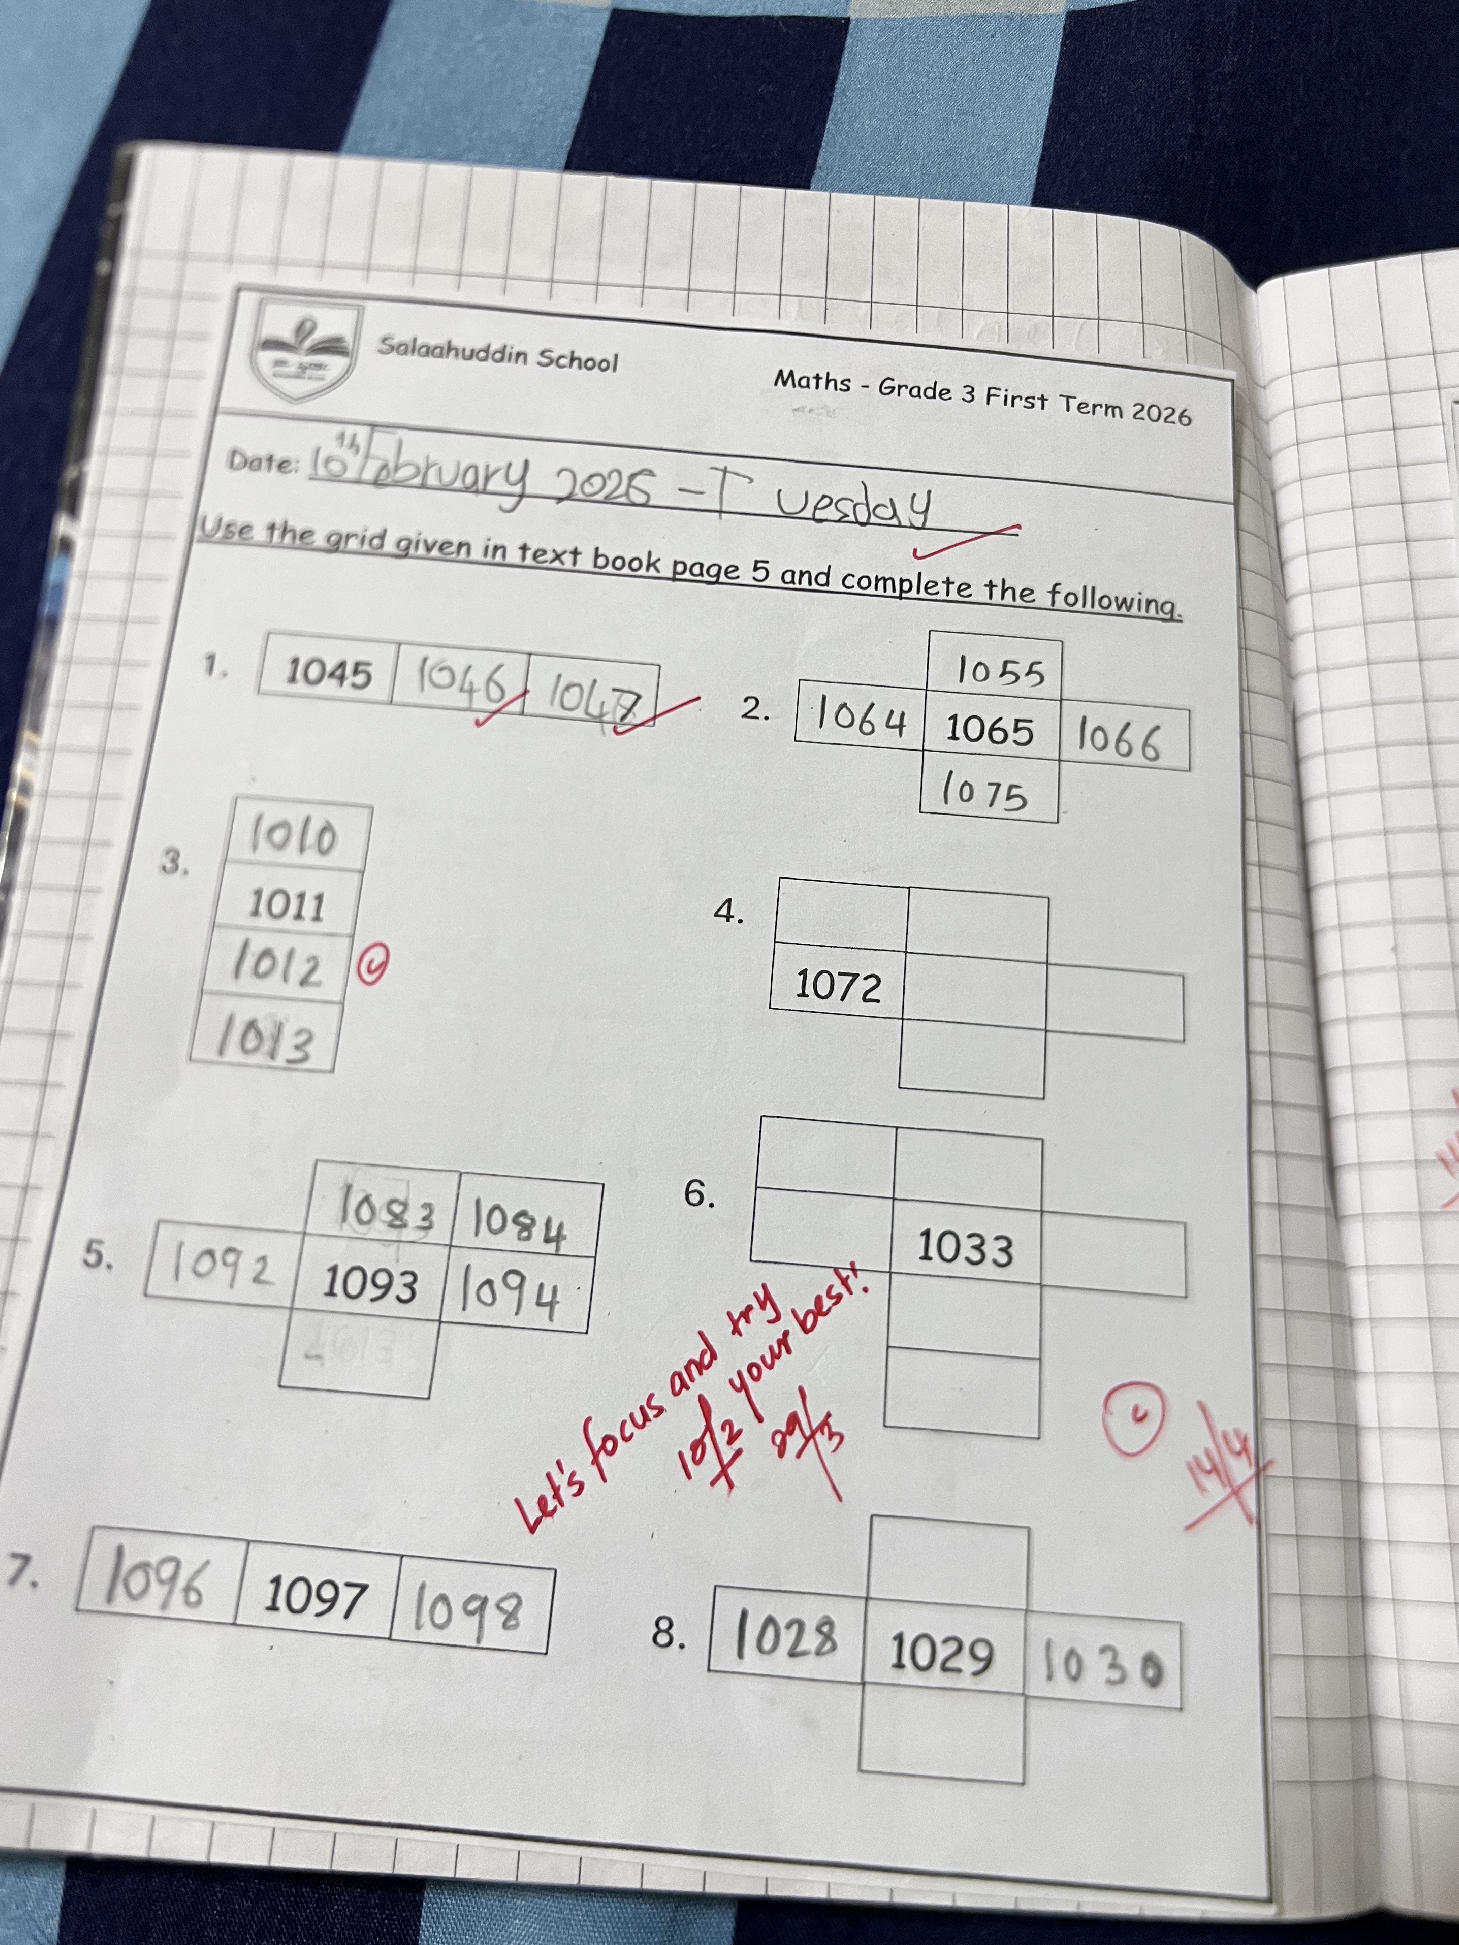 Salaahuddin School
Maths - Grade 3 First Term 2026
Date: 10th February 2026 - Tuesday
Use the grid given in text book page 5 and complete the following.
1. 1045 1046 1047
2. 1055
1064 1065 1066
1075
3. 1010
1011
1012
1013
4. 1072
5. 1083 1084
1092 1093 1094
6. 1033
Let's focus and try
your best!
10/2
29/3
14/4
7. 1096 1097 1098
8. 1028 1029 1030